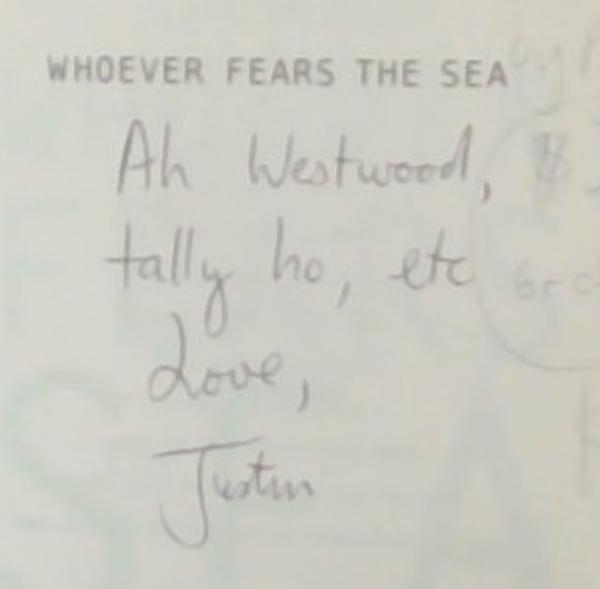 WHOEVER FEARS THE SEA
Ah Westwood,
tally ho, etc
Love,
Justin